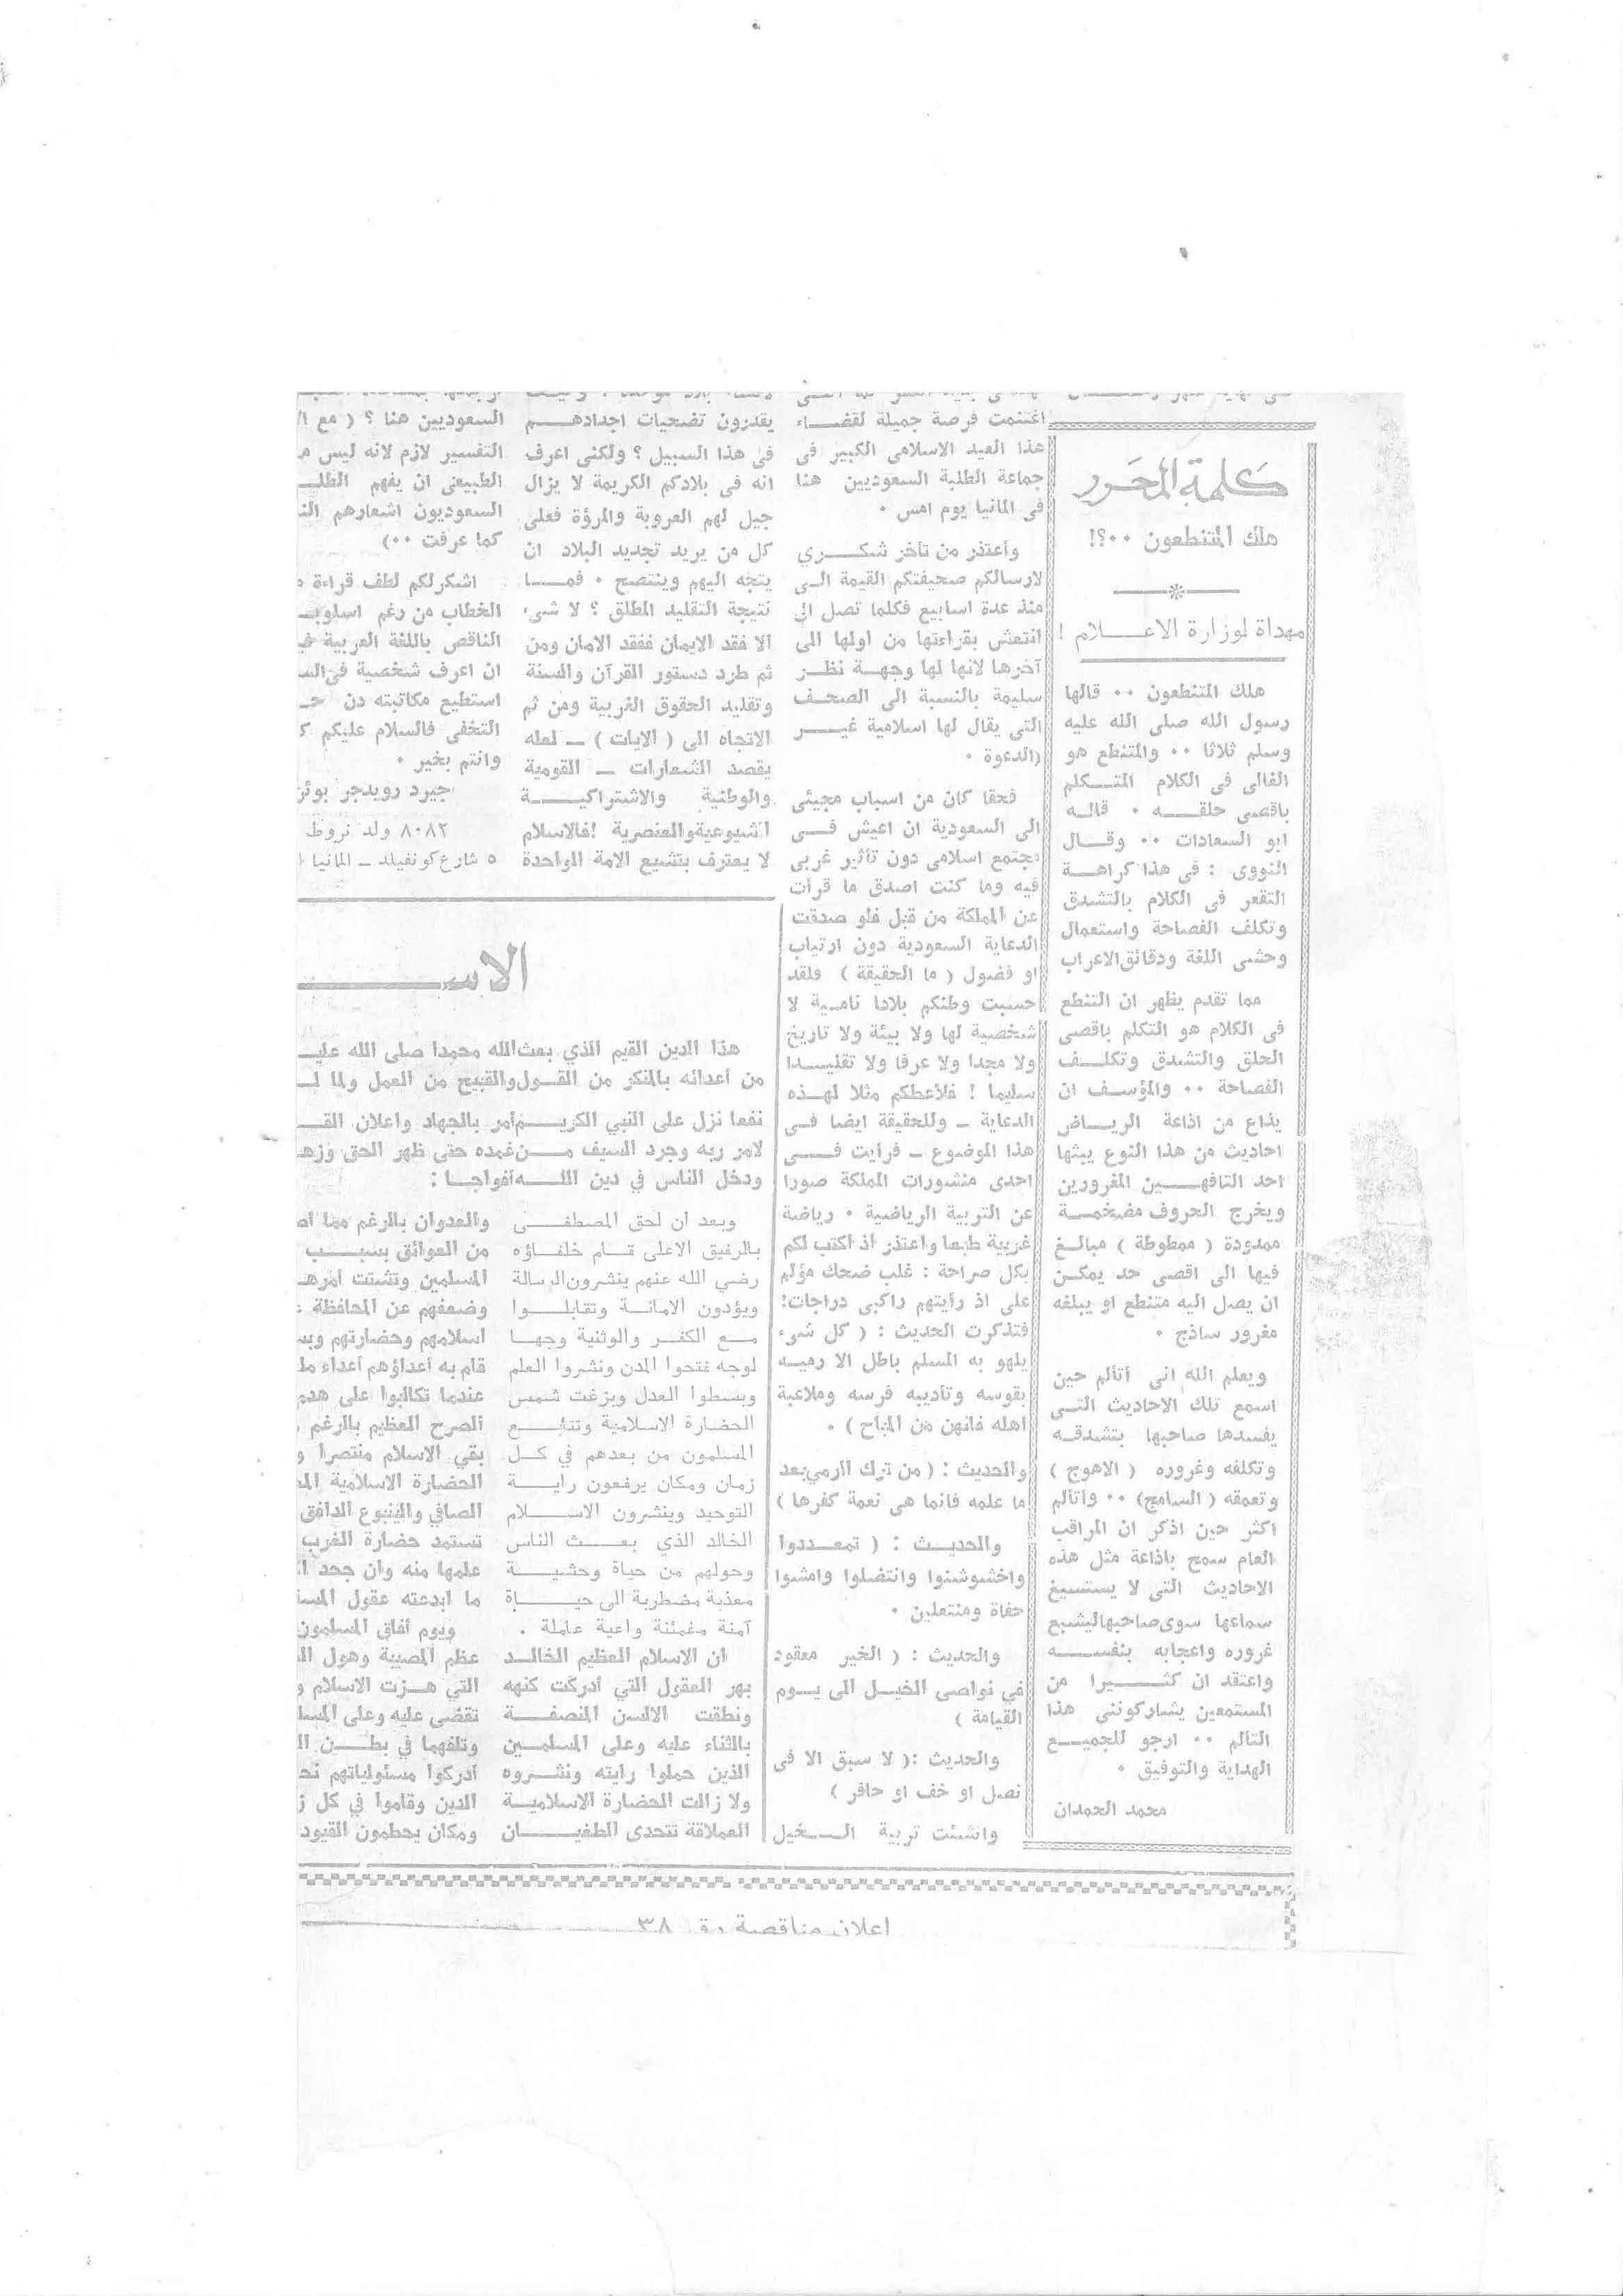 كلمة المحرر
هلك المتنطعون ٠٠؟!
مهداة لوزارة الاعـــلام !
هلك المتنطعون ٠٠ قالها
رسول الله صلى الله عليه
وسلم ثلاثا ٠٠ والمتنطع هو
الغالى فى الكلام المتـــكلم
باقصى حلقــــه ٠ قالــه
ابو السعادات ٠٠ وقــال
النووى : فى هذا كراهــة
التقعر فى الكلام بالتشدق
وتكلف الفصاحة واستعمال
وحشى اللغة ودقائق الاعراب
مما تقدم يظهر ان التنطع
فى الكلام هو التكلم باقصى
الحلق والتشدق وتكلــف
الفصاحة ٠٠ والمؤسـف ان
يذاع من اذاعة الريــاض
احاديث من هذا النوع يبثها
احد التافهـــين المغرورين
ويخرج الحروف مضخمــة
ممدودة ( ممطوطة ) مبالـغ
فيها الى اقصى حد يمكـن
ان يصل اليه متنطع او يبلغه
مغرور ساذج ٠
ويعلم الله انى أتألم حين
اسمع تلك الاحاديث التـى
يفسدها صاحبها بتشدقـه
وتكلفه وغروره ( الاهوج )
وتعمقه ( السامج) ٠٠ وأتألم
اكثر حين اذكر ان المراقب
العام سمح باذاعة مثل هذه
الاحاديث التى لا يستسيغ
سماعها سوى صاحبها ليشبع
غروره واعجابه بنفســـه
واعتقد ان كثــــيرا من
المستمعين يشاركوننى هذا
التألم ٠٠ ارجو للجميــع
الهداية والتوفيق ٠
محمد الحمدان
اغتنمت فرصة جميلة لقضــاء
هذا العيد الاسلامى الكبير فى
جماعة الطلبة السعوديين هنا
فى المانيا يوم امس ٠
وأعتذر من تأخر شكــري
لارسالكم صحيفتكم القيمة الـى
منذ عدة اسابيع فكلما تصل الى
انتعش بقراءتها من اولها الى
آخرها لانها لها وجهـة نظــر
سليمة بالنسبة الى الصحـف
التى يقال لها اسلامية غيـــر
الدعوة) ٠
فحقا كان من اسباب مجيئى
الى السعودية ان اعيش فـــى
مجتمع اسلامى دون تأثير غربى
فيه وما كنت اصدق ما قرأت
عن المملكة من قبل فلو صدقت
الدعاية السعودية دون ارتياب
او فضول ( ما الحقيقة ) فلقد
حسبت وطنكم بلادا نامـية لا
شخصية لها ولا بيئة ولا تاريخ
ولا مجدا ولا عرفا ولا تقليــدا
سليما ! فلأعطكم مثلا لهــذه
الدعاية – وللحقيقة ايضا فـى
هذا الموضوع – فرأيت فـــى
احدى منشورات المملكة صورا
عن التربية الرياضية ٠ رياضة
غربية طبعا واعتذر اذ اكتب لكم
بكل صراحة : غلب ضحك مؤلم
على اذ رأيتهم راكبى دراجات!
فتذكرت الحديث : ( كل شىء
يلهو به المسلم باطل الا رميــه
بقوسه وتأديبه فرسه وملاعبة
اهله فانهن من المباح ) ٠
والحديث : ( من ترك الرمي بعد
ما علمه فانما هى نعمة كفرها )
والحديــث : ( تمعــددوا
واخشوشنوا وانتضلوا وامشوا
حفاة ومنتعلين ٠
والحديث : ( الخير معقود
في نواصى الخيـل الى يــوم
القيامة )
والحديث :( لا سبق الا فى
نصل او خف او حافر )
وانشئت تربية الــخيل
يقدرون تضحيات اجدادهـــم
فى هذا السبيل ؟ ولكنى اعرف
انه فى بلادكم الكريمة لا يزال
جيل لهم العروبة والمرؤة فعلى
كل من يريد تجديد البلاد ان
يتجه اليهم وينتصح ٠ فمــا
نتيجة التقليد المطلق ؟ لا شىء
الا فقد الايمان ففقد الامان ومن
ثم طرد دستور القرآن والسنة
وتقليد الحقوق الغربية ومن ثم
الاتجاه الى ( الايات ) – لعله
يقصد الشعارات – القومية
والوطنية والاشتراكيـــة
الشيوعية والعنصرية ! فالاسلام
لا يعترف بتشيع الامة الواحدة
السعوديين هنا ؟ ( مع
التفسير لازم لانه ليس
الطبيعى ان يفهم الطلـ
السعوديون اشعارهم
كما عرفت ٠٠)
اشكر لكم لطف قراءة
الخطاب من رغم
الناقص باللغة العربية
ان اعرف شخصية فى
استطيع مكاتبته دن
التخفى فالسلام عليكم
وانتم بخير ٠
جيرد رويدجر
٨٠٨٢ ولد
٥ شارع كونفيلد – المانيا
الاســـ
هذا الدين القيم الذي بعث الله محمدا صلى الله عليـ
من أعدائه بالمنكر من القول والقبيح من العمل ولما لـ
نفعا نزل على النبي الكريـــم أمر بالجهاد واعلان القـ
لامر ربه وجرد السيف مــن غمده حتى ظهر الحق وزهـ
ودخل الناس في دين اللـــه أفواجـا :
وبعد أن لحق المصطفــى
بالرفيق الاعلى قـام خلفـاؤه
رضي الله عنهم ينشرون الرسالة
ويؤدون الامانـة وتقابلــوا
مــع الكفـر والوثنية وجهـا
لوجه ففتحوا المدن ونشروا العلم
وبسطوا العدل وبزغت شمس
الحضارة الاسلامية وتتبــع
المسلمون من بعدهم في كــل
زمان ومكان يرفعون رايــة
التوحيد وينشرون الاســلام
الخالد الذي بعــث الناس
وحولهم من حياة وحشيــة
معذبة مضطربة الى حيــاة
آمنة مطمئنة واعية عاملة ٠
ان الاسلام العظيم الخالــد
بهر العقول التي أدركت كنهه
ونطقت الالسن المنصفــة
بالثناء عليه وعلى المسلمـين
الذين حملوا رايته ونشــروه
ولا زالت الحضارة الاسلاميـة
العملاقة تتحدى الطغيــان
والعدوان بالرغم مما
من العوائق بسبــب
المسلمين وتشتت أمرهـ
وضعفهم عن المحافظة
اسلامهم وحضارتهم
قام به أعداؤهم أعداء
عندما تكالبوا على هدم
الصرح العظيم بالرغم
بقي الاسلام منتصرا و
الحضارة الاسلامية
الصافي والينبوع الدافق
تستمد حضارة الغرب
علمها منه وان جحد
ما ابدعته عقول
ويوم أفاق المسلمون
عظم المصيبة وهول
التي هــزت الاسلام و
تقضي عليه وعلى
وتلفهما في بطــن
أدركوا مسئولياتهم
الدين وقاموا في كل
ومكان يحطمون القيود
اعلان مناقصة رقم ٣٨